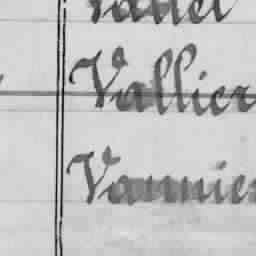 Vallier
Vannier